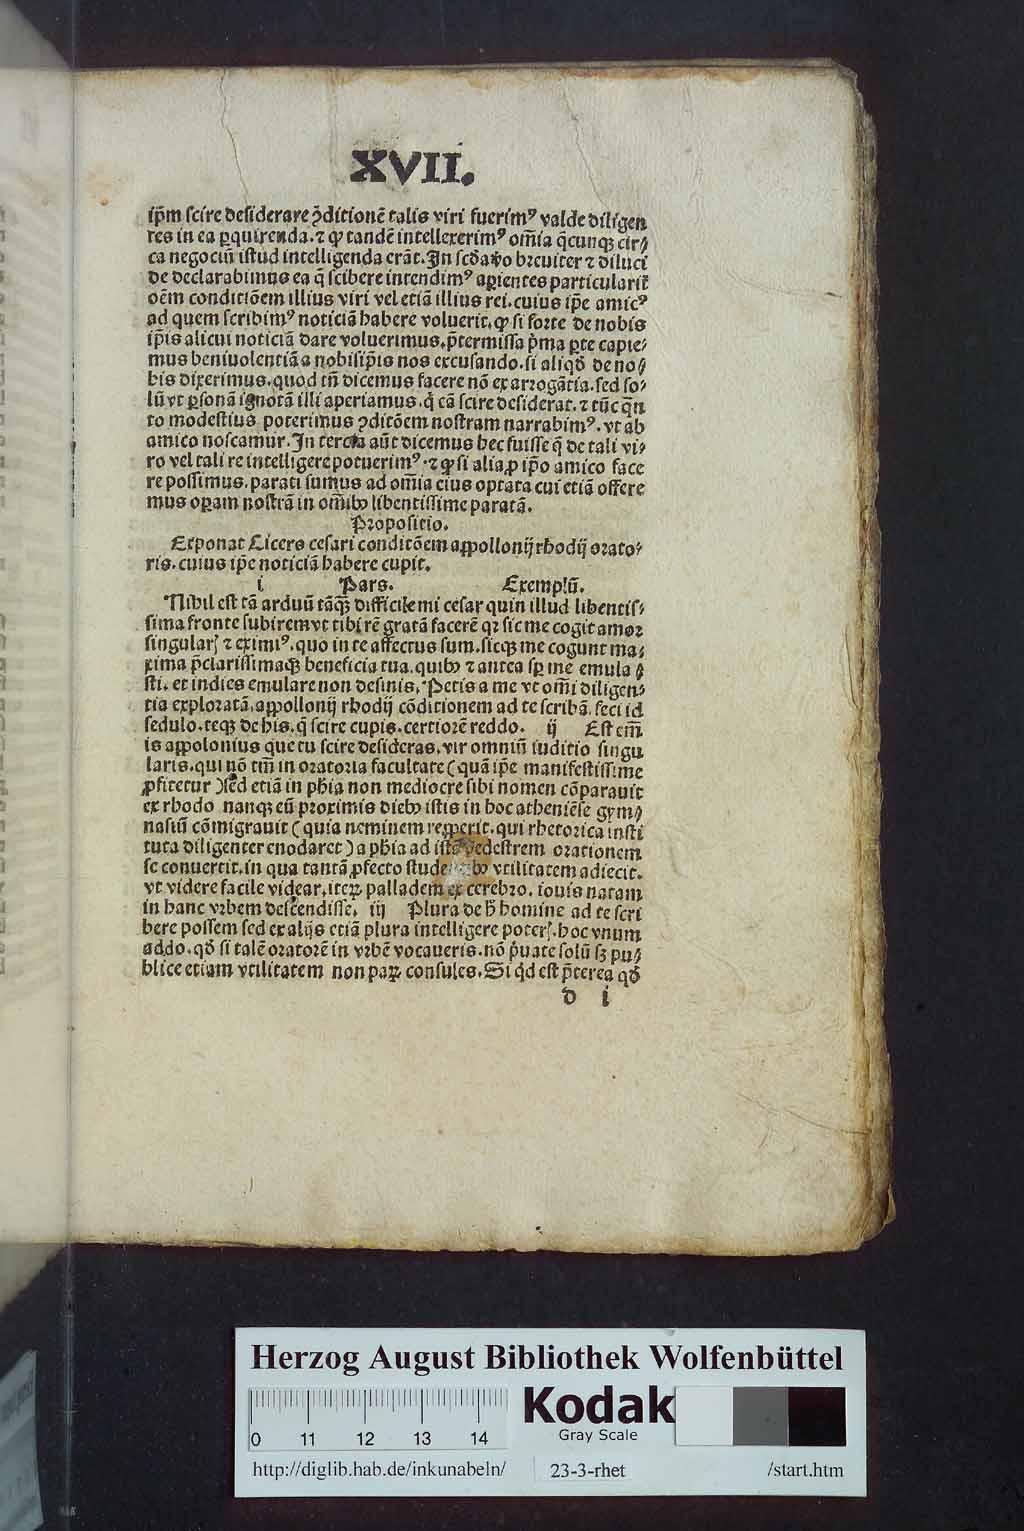 XVII.
ip̄m scire desiderare ꝯditionē talis viri fuerimꝰ valde diligen
tes in ea ꝑquirenda. ⁊ ꝙ tandē intellexerimꝰ om̄ia q̄cunqꝫ cir⸗
ca negociū istud intelligenda erāt. In scd̄a vo breuiter ⁊ diluci
de declarabimus ea q̄ scibere intendimꝰ aꝑientes particularit̄
oēm conditiōem illius viri vel etiā illius rei. cuius ip̄e amicꝰ
ad quem scribimꝰ noticiā habere voluerit. ꝙ si forte de nobis
ip̄is alicui noticiā dare voluerimus. p̄termissa p̄ma ꝑte capie⸗
mus beniuolentiā a nobisip̄is nos excusando. si aliqd̄ de no⸗
bis dixerimus. quod tn̄ dicemus facere nō ex arrogātia. sed so⸗
lū vt ꝑsonā ignotā illi aperiamus. q̇ eā scire desiderat. ⁊ tūc q̄n
to modestius poterimus ꝯditōem nostram narrabimꝰ. vt ab
amico noscamur. In tercia aūt dicemus hec fuisse q̄ de tali vi⸗
ro vel tali re intelligere potuerimꝰ. ⁊ ꝙ si alia ꝓ ip̄o amico face
re possimus. parati sumus ad om̄ia eius optata cui etiā offere
mus oꝑam nostrā in om̄ibꝰ libentissime paratā.
Propositio.
Exponat Cicero cesari conditōem appollonij rhodij orato⸗
ris. cuius ip̄e noticiā habere cupit.
i Pars. Exemplū.
Nihil est tā arduū tāqꝫ difficile mi cesar quin illud libentis⸗
sima fronte subirem vt tibi rē gratā facerē qꝛ sic me cogit amor
singularꝭ ⁊ eximiꝰ. quo in te affectus sum. sicqꝫ me cogunt ma⸗
xima p̄clarissimaqꝫ beneficia tua. quibꝰ ⁊ antea sꝑ me emula
sti. et indies emulare non desinis. Petis a me vt om̄i diligen⸗
tia exploratā. appollonij rhodij cōditionem ad te scribā. feci id
sedulo. teqꝫ de his. q̄ scire cupis. certiorē reddo. ij Est em̄
is appolonius que tu scire desideras. vir omniū iuditio singu
laris. qui nō tm̄ in oratoria facultate ( quā ip̄e manifestissime
ꝓfitetur ) sed etiā in ph̄ia non mediocre sibi nomen cōparauit
ex rhodo nanqꝫ eū proximis diebꝰ istis in hoc atheniēse gym⸗
nasiū cōmigrauit ( quia neminem repperit. qui rhetorica insti
tuta diligenter enodaret ) a ph̄ia ad istā pedestrem orationem
se conuertit. in qua tantā ꝓfecto vtilitatem adiecit.
vt videre facile videar. iteꝝ palladem ex cerebro. iouis natam
in hanc vrbem descendisse. iij Plura de h̄ homine ad te scri
bere possem sed ex alijs etiā plura intelligere poterꝭ. hoc vnum
addo. qd̄ si talē oratorē in vrbē vocaueris. nō p̄uate solū sꝫ pu⸗
blice etiam vtilitatem non paꝝ consules. Si qd̄ est p̄terea qd̄
d i
Herzog August Bibliothek Wolfenbüttel
0 11 12 13 14
Kodak
Gray Scale
http://diglib.hab.de/inkunabeln/ 23-3-rhet /start.htm